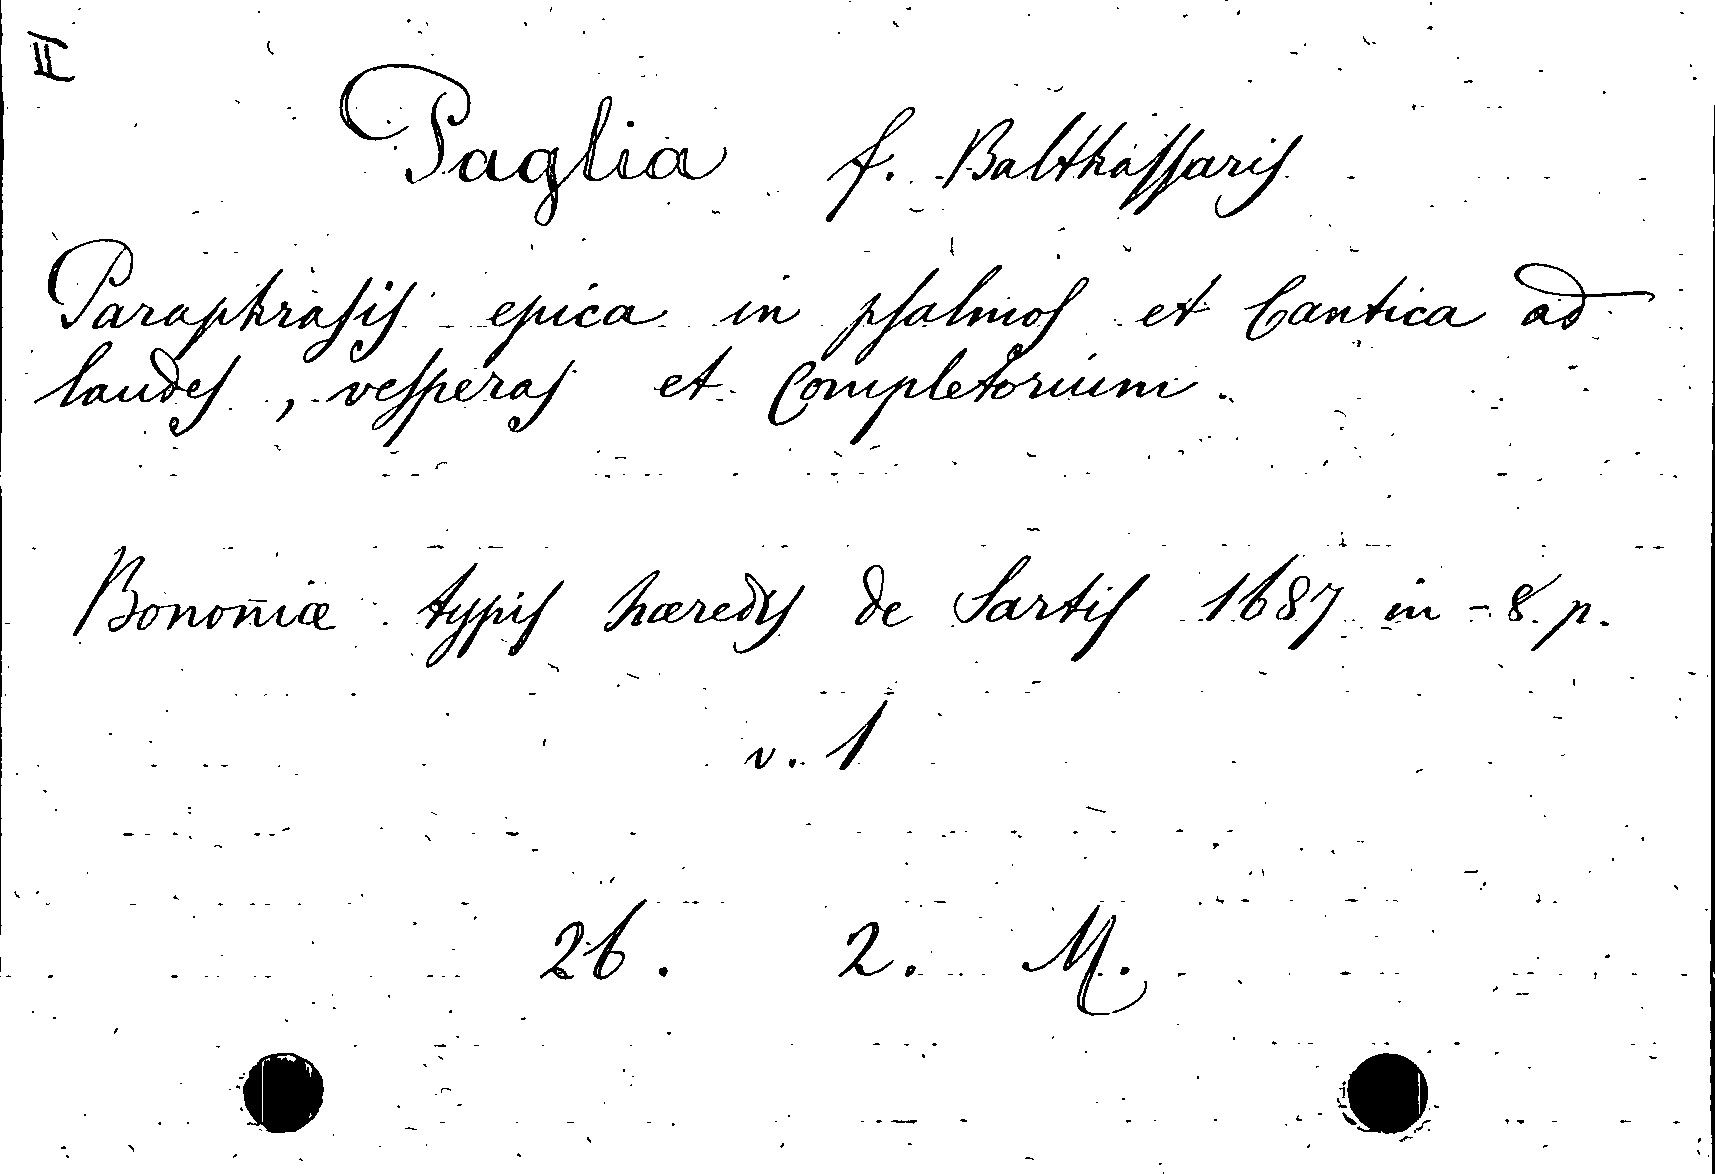 II
Paglia f. Balthassaris
Paraphrasis epica in psalmos et Cantica ad
laudes, vesperas et Completorium.
Bonoñiæ typis hæredis de Sartis 1687 in-8. p.
v. 1
26. 2. M.